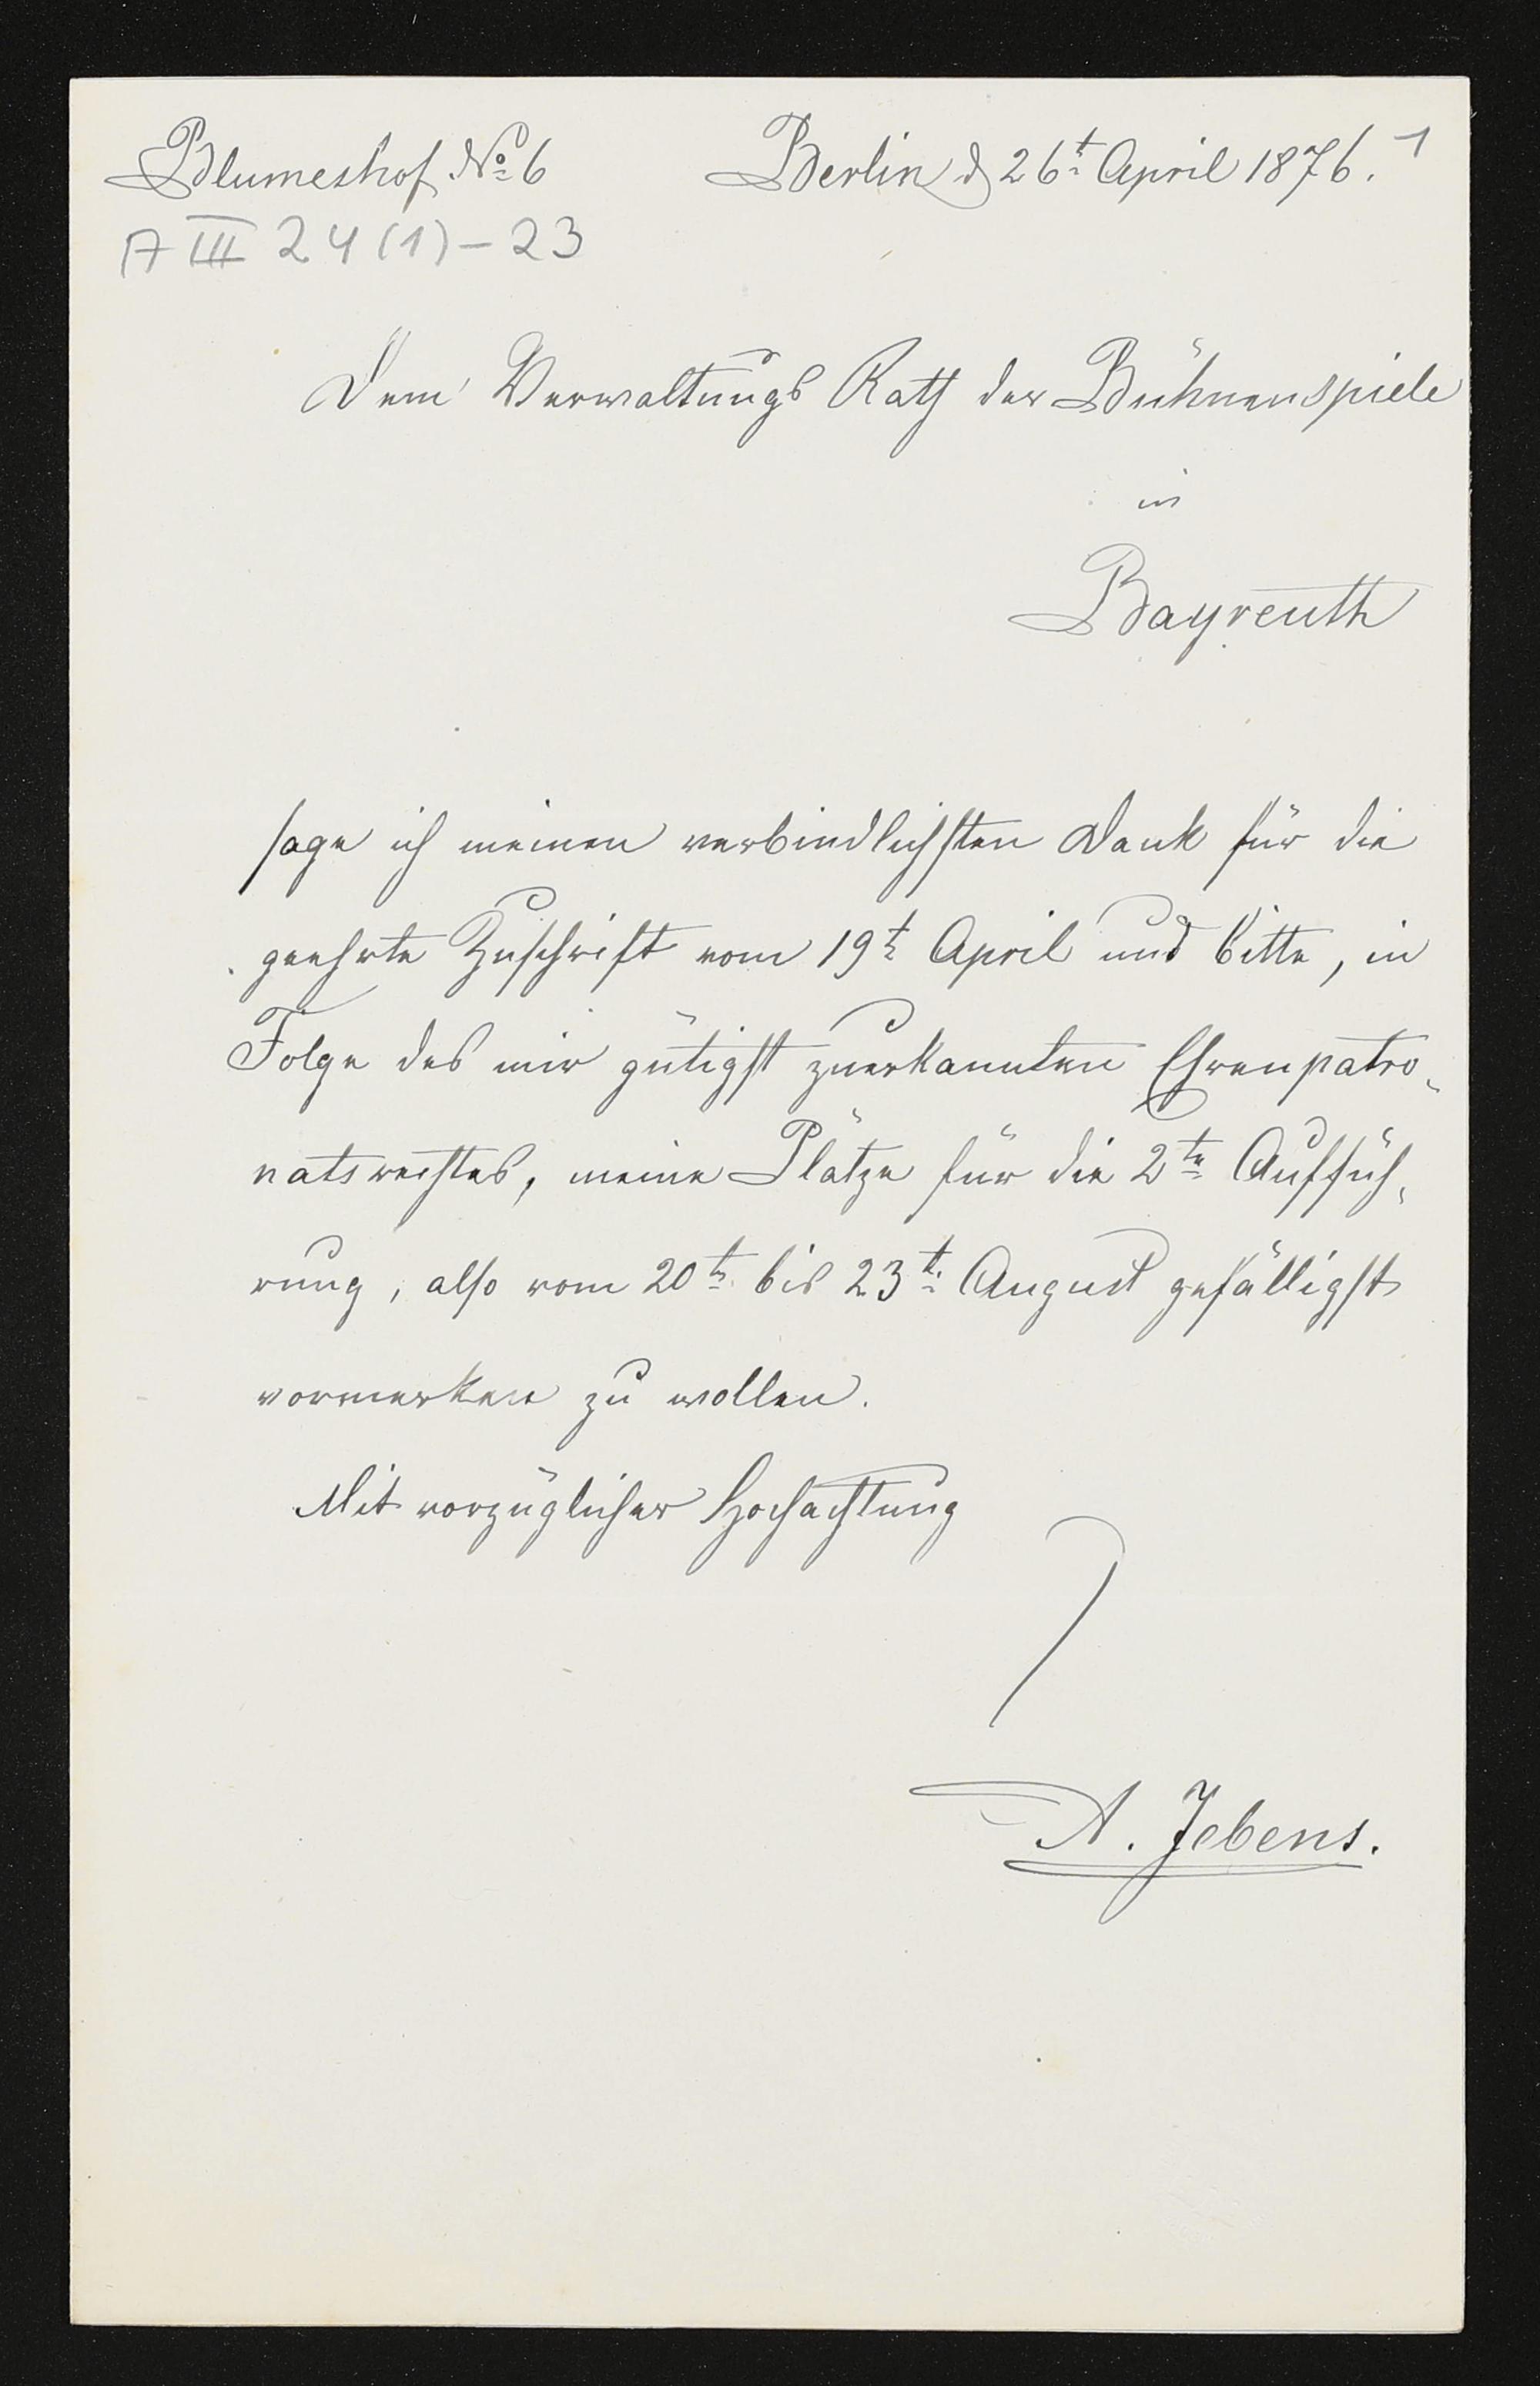 Blumeshof No 6 Berlin d 26t April 1876. 1
A III 24 (1) - 23
Dem Verwaltungs Rath der Bühnenspiele
in
Bayreuth
sage ich meinen verbindlichsten Dank für die
geehrte Zuschrift vom 19t April und bitte, in
Folge des mir gütigst zuerkannten Ehrenpatro-
natsrechtes, meine Plätze für die 2te Auffüh-
rung, also vom 20t bis 23t August gefälligst
vormerken zu wollen.
Mit vorzüglicher Hochachtung
A. Jebens.